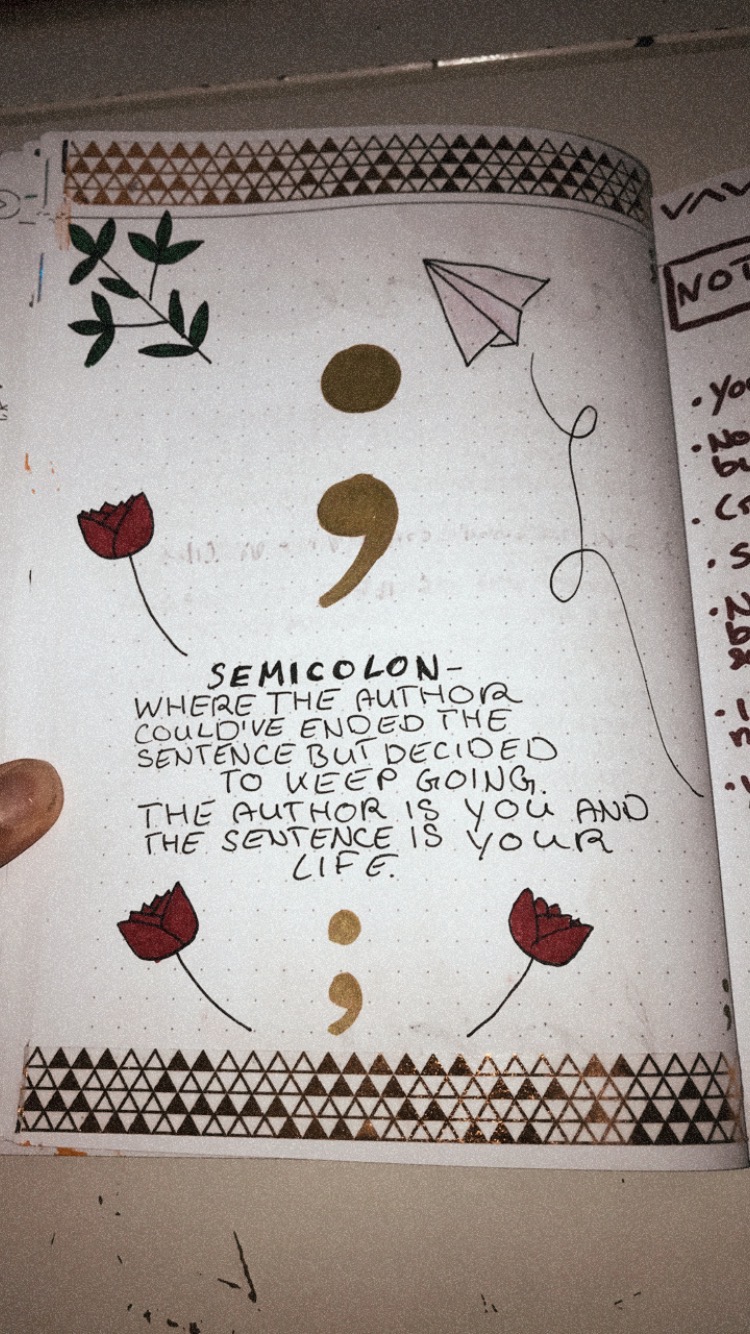 ;
SEMICOLON-
WHERE THE AUTHOR
COULD'VE ENDED THE
SENTENCE BUT DECIDED
TO KEEP GOING.
THE AUTHOR IS YOU AND
THE SENTENCE IS YOUR
LIFE.
;